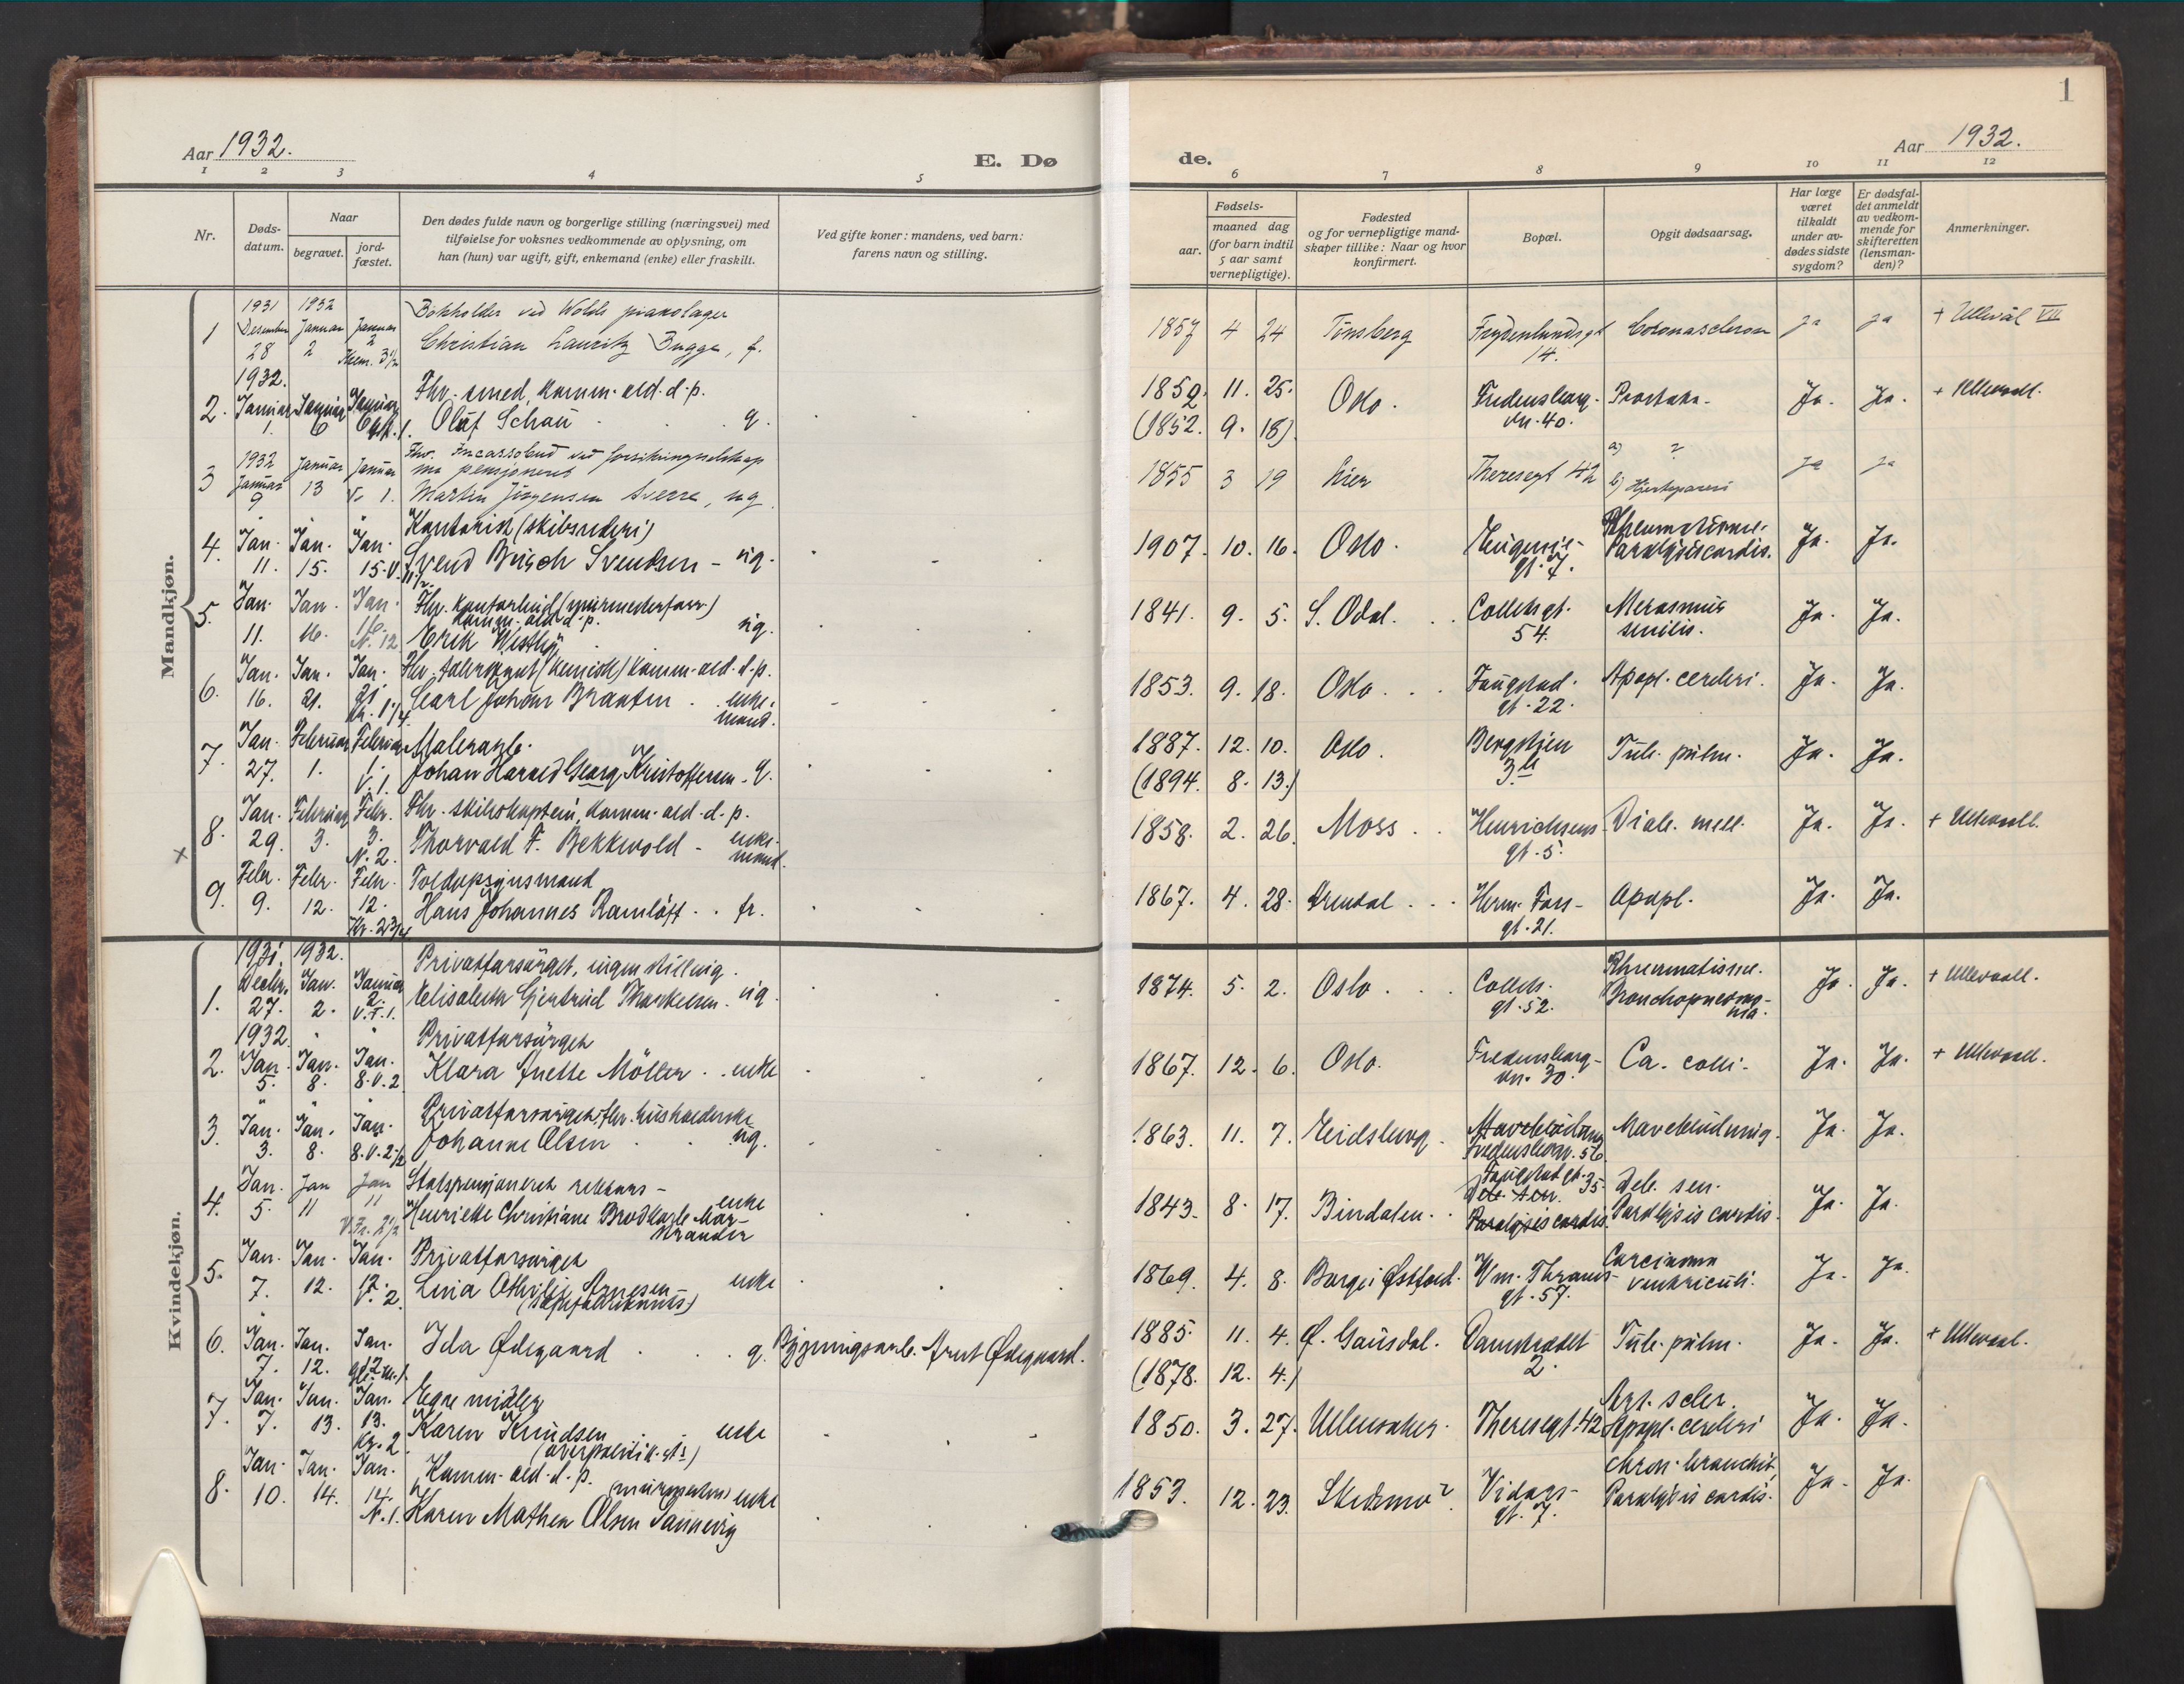 1
Aar 1932.
E. Dø
de.
Aar 1932.
1 2 3 4 5 6 7 8 9 10 11 12
Nr.
Døds-
datum.
Naar
begravet.
jord-
fæstet.
Den dødes fulde navn og borgerlige stilling (næringsvei) med
tilføielse for voksnes vedkommende av oplysning, om
han (hun) var ugift, gift, enkemand (enke) eller fraskilt.
Ved gifte koner: mandens, ved barn:
farens navn og stilling.
Fødsels-
aar.
maaned dag
(for barn indtil
5 aar samt
vernepligtige).
Fødested
og for vernepligtige mand-
skaper tillike: Naar og hvor
konfirmert.
Bopæl.
Opgit dødsaarsag.
Har læge
været
tilkaldt
under av-
dødes sidste
sygdom?
Er dødsfal-
det anmeldt
av vedkom-
mende for
skifteretten
(lensman-
den)?
Anmerkninger.
Mandkjøn.
1931 1932
Bokholder ved Wolds pianolager
1 Desember 28 Januar 2 Januar 2 Krem. 3½ Christian Lauritz Bugge, f. 1857 4 24 Tønsberg Frydenlundsgt 14. ja ja + Ullevål VII
1932.
Fhv. smed, komm. ald. d. p.
2. Januar 1. Januar 6 Januar Oluf Schau g. 1859. 11. 25. Oslo. Fredensborg- vn. 40. Prostata. Ja. Ja. + Ullevaall.
(1852. 9. 18)
1932
Fhv. Incassobud ved forsikringsselskap
nu pensjoneret
3 Januar 9 Januar 13 Januar V. 1. Martin Jørgensen Sverre, ug. 1855 3 19 Lier Theresegt 42 a) ? b) Hjerteparese ja ja
Kontorist (skibsrederi)
4. Jan. 11. Jan. 15. Jan. 15. V. Svend Svendsen - ug. 1907. 10. 16. Oslo. Eugenie- gt. 7. Paralysis cordis. Ja. Ja.
Fhv. kontorbud
komm. ald. d. p.
5. Jan. 11. Jan. 16. Jan. 16. N. 12 Erik Westby ug. 1841. 9. 5. S. Odal. Colletts gt. 54. Marasmus senilis. Ja. Ja.
komm. ald. d. p.
6. Jan. 16. Jan. 21. Jan. 21. Kr. 1¼. Carl Johan Braaten. enke- mand. 1853. 9. 18. Oslo. Fougstad- gt. 22. Apopl. cerebri. Ja. Ja.
Malerarb.
7. Jan. 27. Februar 1. Februar 1. V. 1. Johan Harald Georg Kristoffersen - g. 1887. 12. 10. Oslo. Bergstien 3 II Tub. pulm. Ja. Ja.
(1894. 8. 13.)
Fhv. skibskaptein, komm. ald. d. p.
x 8. Jan. 29. Februar 3. Febr. 3. N. 2. Thorvald F. Bekkevold - enke- mand. 1858. 2. 26. Moss. Henrichsens gt. 5. Diab. mell. Ja. Ja. + Ullevaall.
Toldopsynsmand
9. Febr. 9. Febr. 12. Febr. 12. Kr. 2¾. Hans Johannes Ramløff. fr. 1867. 4. 28. Arendal. Herm. Foss- gt. 21. Apopl. Ja. Ja.
Kvindekjøn.
1931. 1932.
Privatforsørget, ingen stilling.
1. Decbr. 27. Jan. 2. Januar 2. V. F. 1. Elisabeth Gjertrud Thorkelsen. ug. 1874. 5. 2. Oslo. Colletts- gt. 52. Rheumatisme. Bronchopneumo- nia. Ja. Ja. + Ullevaall.
1932.
Privatforsørget
2. Jan. 5. Jan. 8. Jan. 8. V. 2 Klara Anette Möller. enke 1867. 12. 6. Oslo. Fredensborg- vn. 30. Ca. colli. Ja. Ja. + Ullevaall.
Privatforsørget, fhv. husholderske
3. Jan. 3. Jan. 8. Jan. 8. V. 2½ Johanne Olsen ug. 1863. 11. 7. Eidsberg. Maveblødning Fredensborgv. 56. Maveblødning. Ja. Ja.
Statspensjoneret
4. Jan. 5. Jan 11 Jan 11 V. Fr. 2½ Henriette Christiane Brodtkorb Mar- strander enke 1843. 8. 17. Bindalen. Fougstadgt. 35 Deb. sen. Paralysis cordis. Deb. sen. Paralysis cordis. Ja. Ja.
Privatforsørget
5. Jan. 7. Jan. 12. Jan. 12. V. 2. Lina Othilie Arnesen enke 1869. 4. 8. Borge i Østfold. Vm. Thranes- gt. 57. Carcinoma ventriculi. Ja. Ja.
6. Jan. 7. Jan. 12. Jan. 12 Ida Ødegaard g. Bygningsarb. Arnt Ødegaard. 1885. 11. 4. Ø. Gausdal. Damstrædet 2. Tub. pulm. Ja. Ja. + Ullevaal.
(1878. 12. 4.)
Egne midler
7. Jan. 7. Jan. 13. Jan. 13. Kr. 2 Karen Knudsen enke 1850. 3. 27. Ullensaker. Theresegt. 42 Art. scler. Apopl. cerebri Ja. Ja.
Komm. ald. d. p.
8. Jan. 10. Jan. 14. Jan. 14. N. 1. Karen Mathea Olsen Sannevig enke 1853. 12. 23. Skedsmo? Vidars- gt. 7. Chron. bronchit. Paralysis cordis. Ja. Ja.